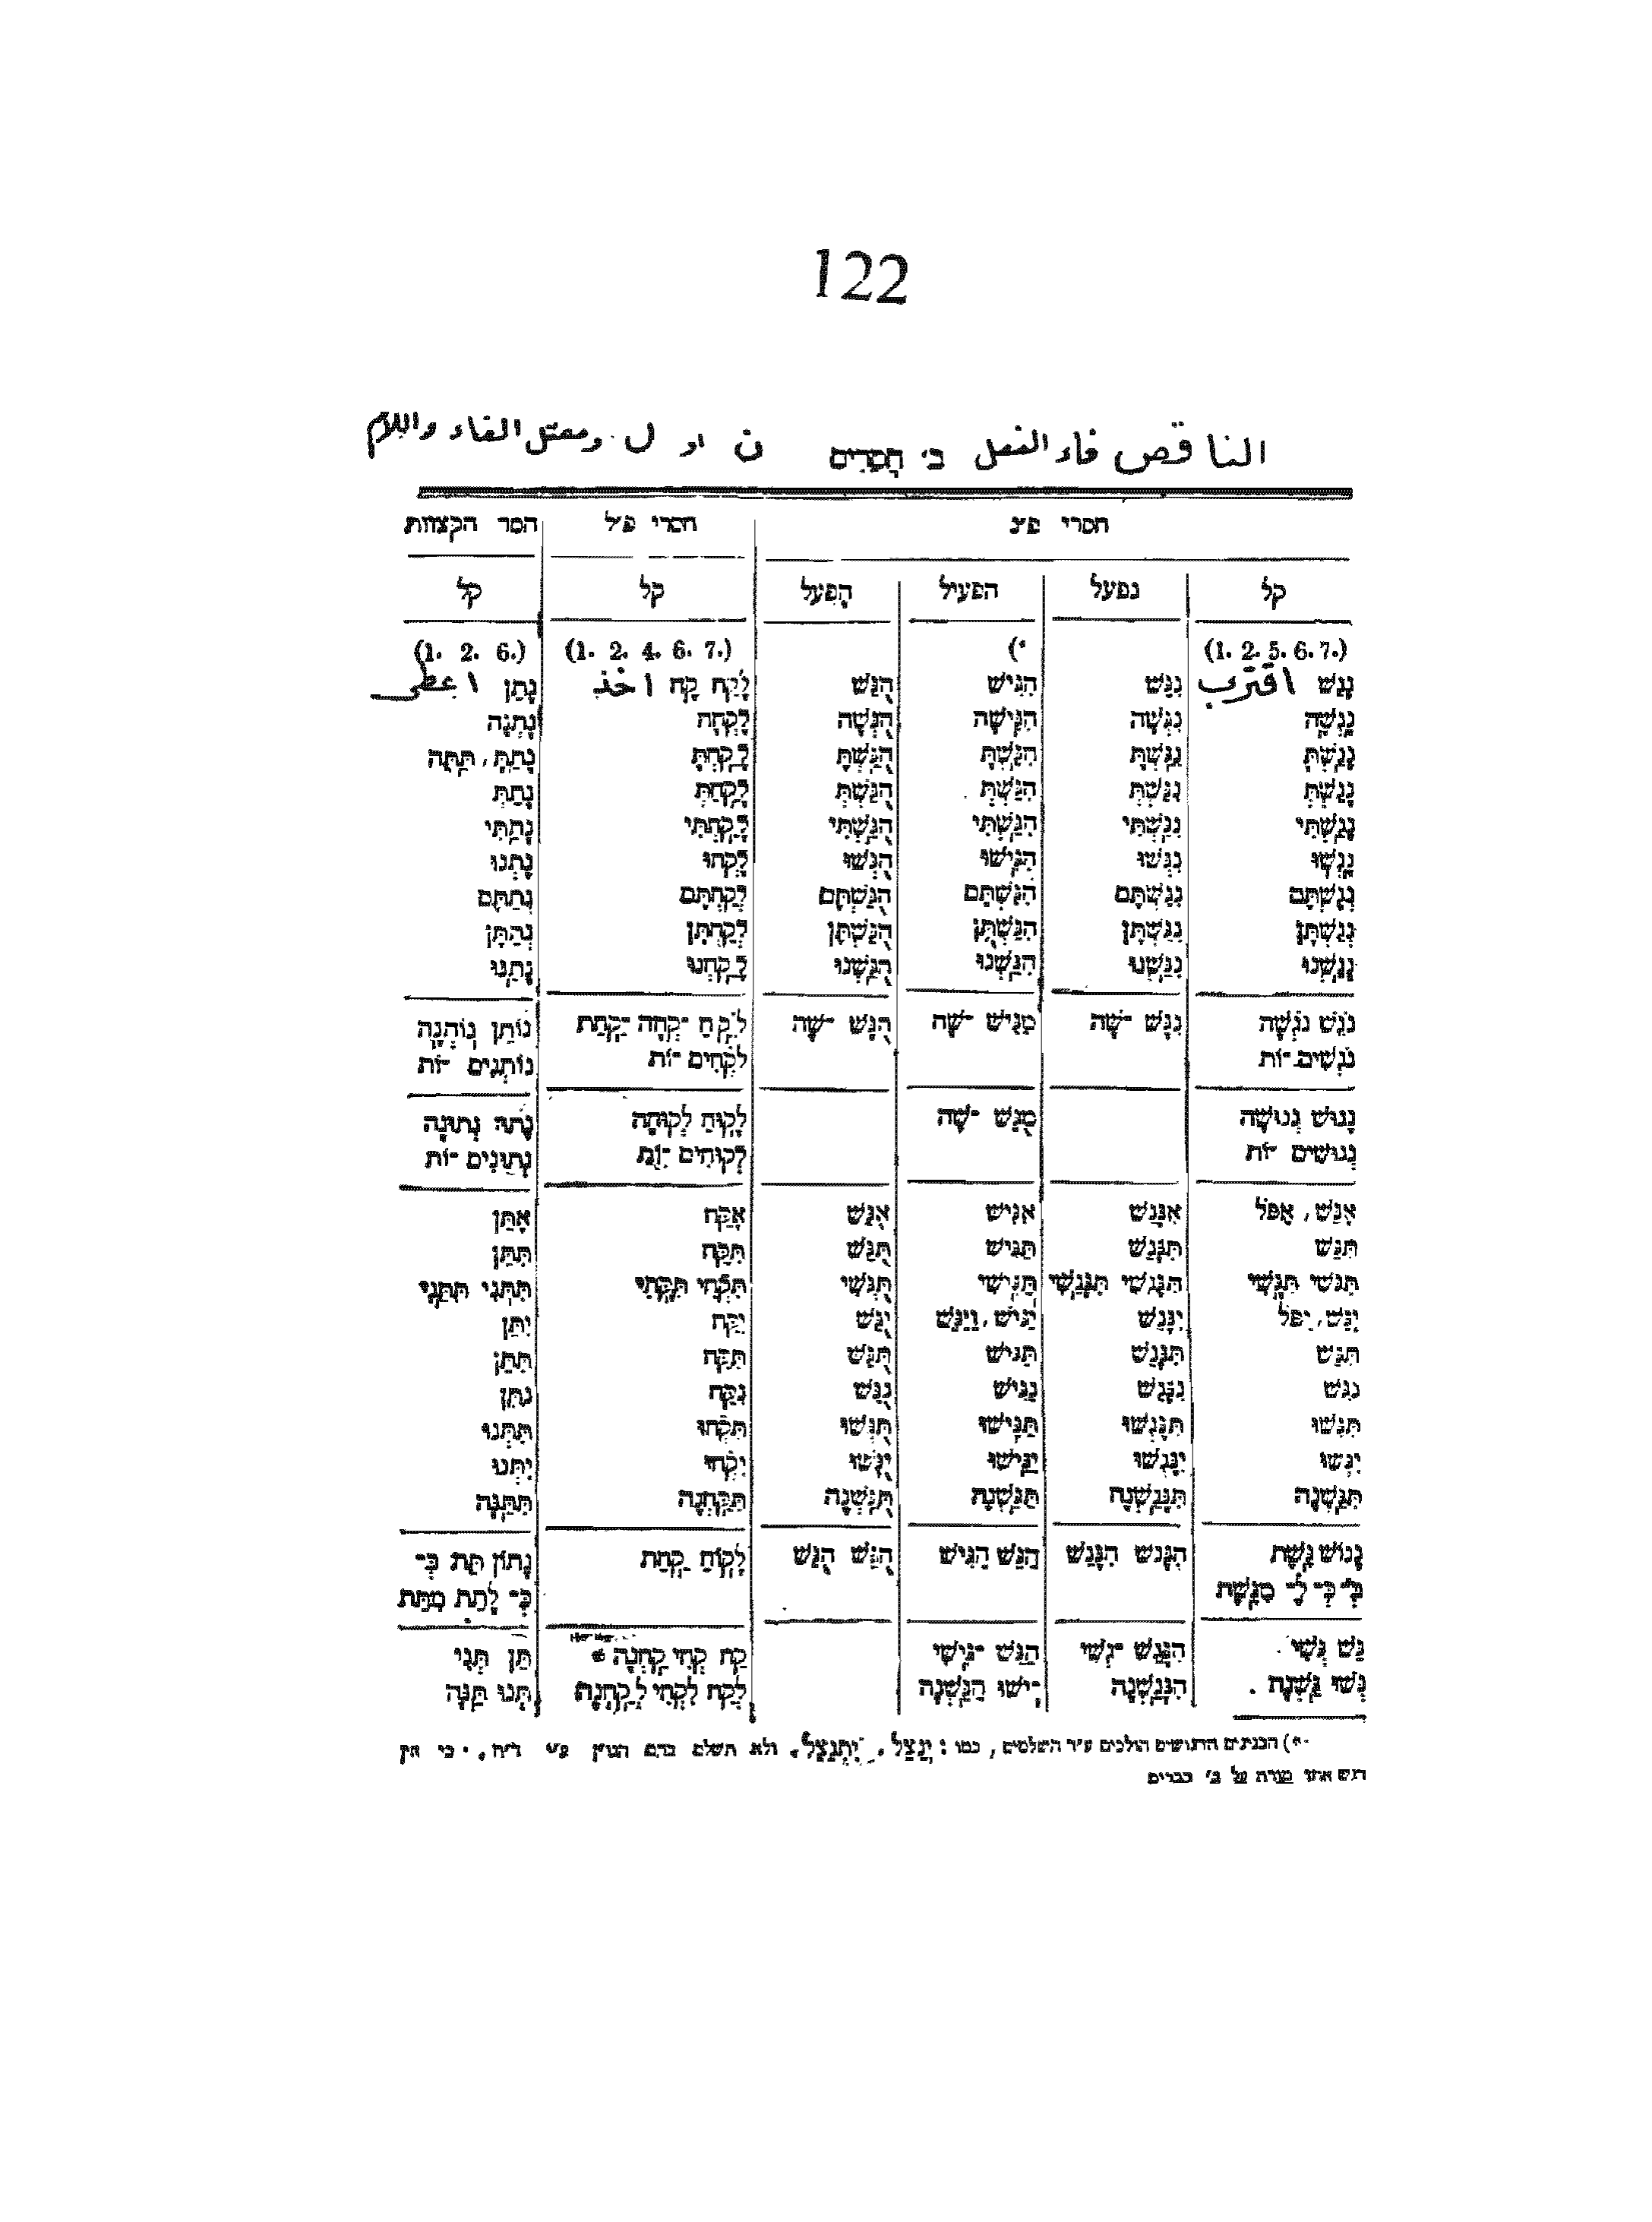 122
الناقص فاء الفعل ב׳ חֲסֵרִים ن او ل ومعتل الفاء واللام
חסרי פ״נ חסרי פ״ל חסר הקצוות
קל נפעל הפעיל הָפעל קל קל
(1. 2. 5. 6. 7.) *) (1. 2. 4. 6. 7.) (1. 2. 6.)
נָגַשׁ اقترب נִגַּשׁ הִגִּישׁ הֻגַּשׁ לָקַח קַח اخذ נָתַן اعطى
נָגְשָׁה נִגְּשָׁה הִגִּישָׁה הֻגְּשָׁה לָקְחָה נָתְנָה
נָגַשְׁתָּ נִגַּשְׁתָּ הִגַּשְׁתָּ הֻגַּשְׁתָּ לָקַחְתָּ נָתַתָּ, תַּתָּה
נָגַשְׁתְּ נִגַּשְׁתְּ הִגַּשְׁתְּ הֻגַּשְׁתְּ לָקַחַתְּ נָתַתְּ
נָגַשְׁתִּי נִגַּשְׁתִּי הִגַּשְׁתִּי הֻגַּשְׁתִּי לָקַחְתִּי נָתַתִּי
נָגְשׁוּ נִגְּשׁוּ הִגִּישׁוּ הֻגְּשׁוּ לָקְחוּ נָתְנוּ
נְגַשְׁתֶּם נִגַּשְׁתֶּם הִגַּשְׁתֶּם הֻגַּשְׁתֶּם לְקַחְתֶּם נְתַתֶּם
נְגַשְׁתֶּן נִגַּשְׁתֶּן הִגַּשְׁתֶּן הֻגַּשְׁתֶּן לְקַחְתֶּן נְתַתֶּן
נָגַשְׁנוּ נִגַּשְׁנוּ הִגַּשְׁנוּ הֻגַּשְׁנוּ לָקַחְנוּ נָתַנּוּ
נֹגֵשׁ נֹגְשָׁה נִגָּשׁ ־שָׁה מַגִּישׁ ־שָׁה הֻגָּשׁ ־שָׁה לֹקֵחַ ־קְחָה ־קַחַת נוֹתֵן נוֹתְנָה
נֹגְשִׁים ־וֹת לֹקְחִים ־וֹת נוֹתְנִים ־וֹת
נָגוּשׁ נְגוּשָׁה מֻגַּשׁ ־שָׁה לָקוּחַ לְקוּחָה נְתוּנָה
נְגוּשִׁים ־וֹת לְקוּחִים ־וֹת נְתוּנִים ־וֹת
אֶגַּשׁ, אֶפֹּל אִנָּגֵשׁ אַגִּישׁ אֻגַּשׁ אֶקַּח אֶתֵּן
תִּגַּשׁ תִּנָּגֵשׁ תַּגִּישׁ תֻּגַּשׁ תִּקַּח תִּתֵּן
תִּגְּשִׁי תִּגָּשִׁי תִּנָּגְשִׁי תִּנָּגֵשִׁי תַּגִּישִׁי תֻּגְּשִׁי תִּקְחִי תִּקָּחִי תִּתְּנִי תִּתֵּנִי
יִגַּשׁ, יִפֹּל יִנָּגֵשׁ יַגִּישׁ, וַיַּגֵּשׁ יֻגַּשׁ יִקַּח יִתֵּן
תִּגַּשׁ תִּנָּגֵשׁ תַּגִּישׁ תֻּגַּשׁ תִּקַּח תִּתֵּן
נִגַּשׁ נִנָּגֵשׁ נַגִּישׁ נֻגַּשׁ נִקַּח נִתֵּן
תִּגְּשׁוּ תִּנָּגְשׁוּ תַּגִּישׁוּ תֻּגְּשׁוּ תִּקְחוּ תִּתְּנוּ
יִגְּשׁוּ יִנָּגְשׁוּ יַגִּישׁוּ יֻגְּשׁוּ יִקְחוּ יִתְּנוּ
תִּגַּשְׁנָה תִּנָּגַשְׁנָה תַּגֵּשְׁנָה תֻּגַּשְׁנָה תִּקַּחְנָה תִּתֵּנָּה
נָגוֹשׁ גֶּשֶׁת הִנָּגֵשׁ הִנָּגֵשׁ הַגֵּשׁ הַגִּישׁ הֻגֵּשׁ הֻגַּשׁ לָקוֹחַ קַחַת נָתוֹן תֵּת בְּ־
בְּ־ כְּ־ לָ־ מִגֶּשֶׁת כְּ־ לָתֵת מִתֵּת
גַּשׁ גְּשִׁי הִנָּגֵשׁ ־גְשִׁי הַגֵּשׁ ־גִּישִׁי קַח קְחִי קַחְנָה תֵּן תְּנִי
גְּשׁוּ גַּשְׁנָה הִנָּגַשְׁנָה ־ישׁוּ הַגֵּשְׁנָה לְקַח לִקְחִי לְקַחְנָה תְּנוּ תֵּנָּה
*) הבנינים הדגושים הולכים ע״ד השלמים, כמו: יְנַצֵּל, יִתְנַצֵּל, ולא תשלם בהם הנו״ן ע״פ כי אין
דגש אחר מורה על ב׳ כבדים